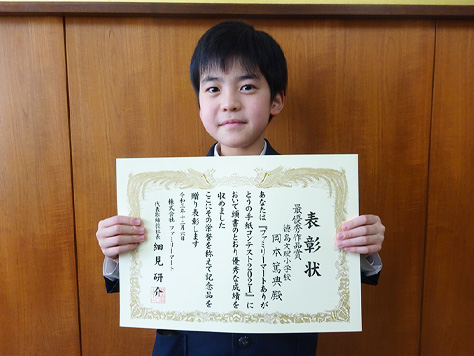 表彰状
最優秀作品賞
徳島文理小学校
岡本篤典殿
あなたは「ファミリーマートありが
とうの手紙コンテスト2021」に
おいて頭書のとおり優秀な成績を
収めました
ここにその栄誉を称えて記念品を
贈り表彰します
令和三年十二月六日
株式会社ファミリーマート
代表取締役社長 細見研介